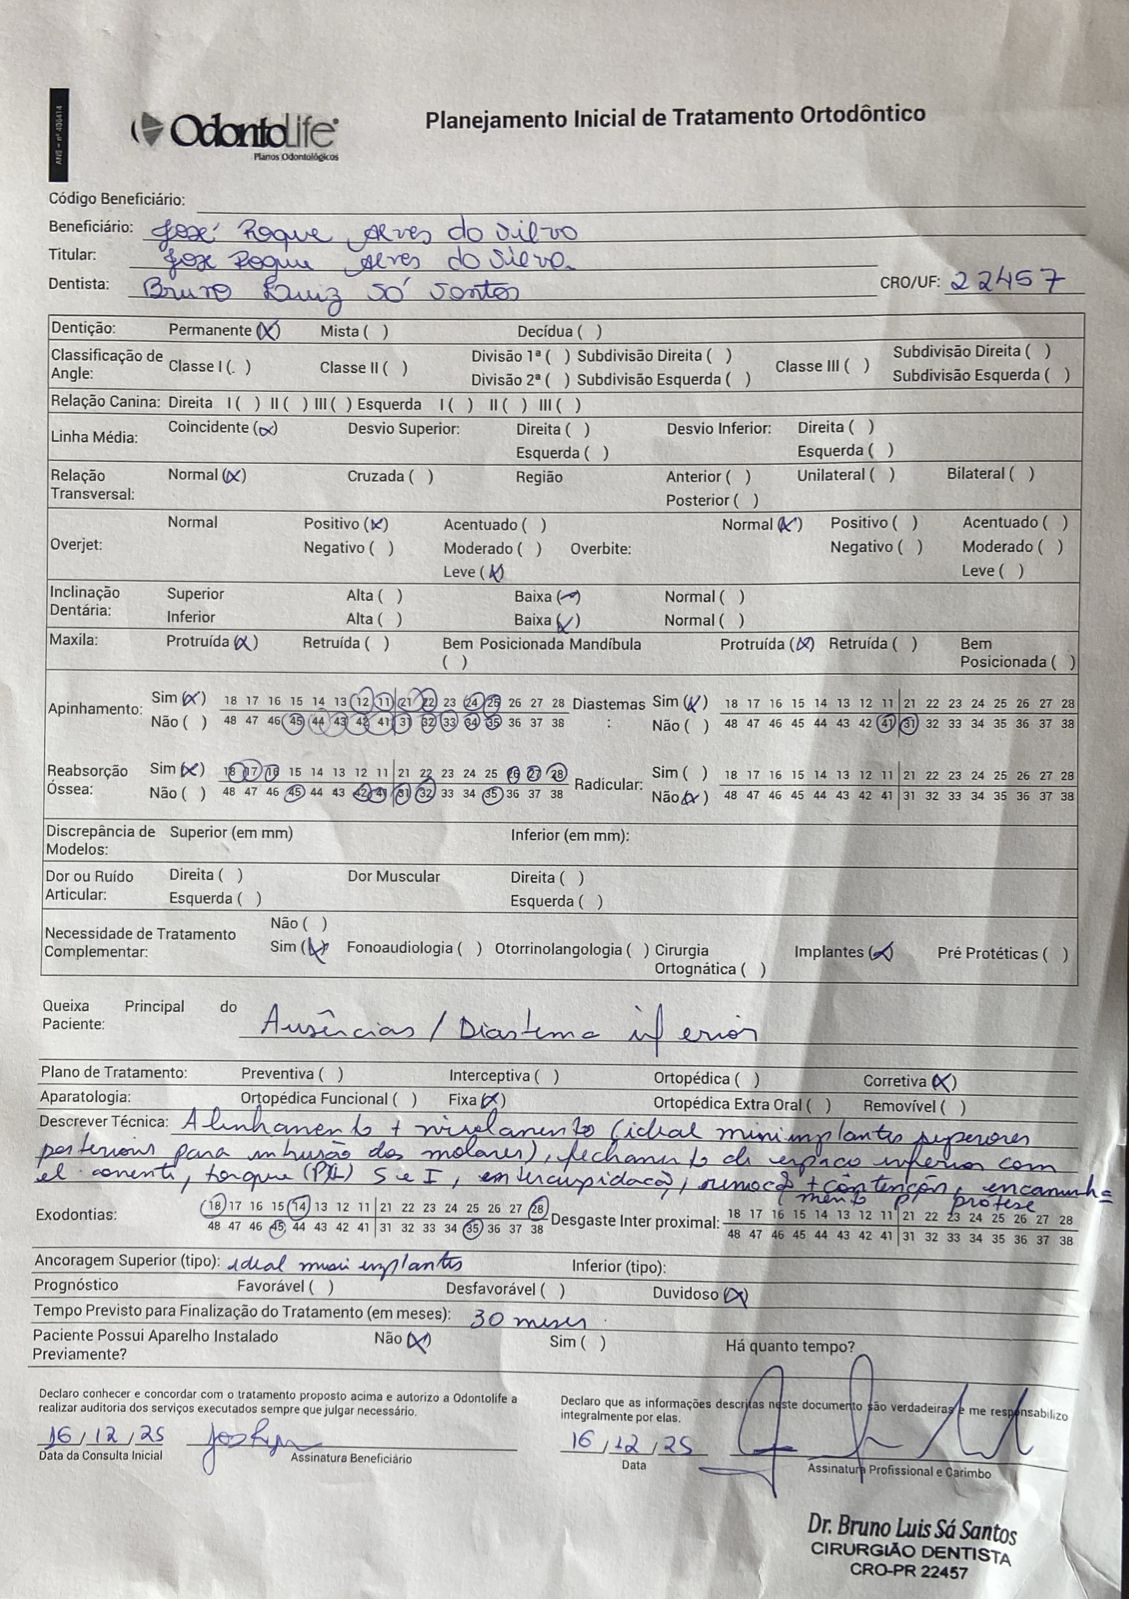 ANS – nº 406414
OdontoLife®
Planos Odontológicos
Planejamento Inicial de Tratamento Ortodôntico
Código Beneficiário:
Beneficiário: José Roque Alves da Silva
Titular: José Roque Alves da Silva
Dentista: Bruno Luiz Sá Santos CRO/UF: 22457
Dentição: Permanente (X) Mista ( ) Decídua ( )
Classificação de Angle: Classe I (. ) Classe II ( ) Divisão 1ª ( ) Subdivisão Direita ( ) Classe III ( ) Subdivisão Direita ( )
Divisão 2ª ( ) Subdivisão Esquerda ( ) Subdivisão Esquerda ( )
Relação Canina: Direita I ( ) II ( ) III ( ) Esquerda I ( ) II ( ) III ( )
Linha Média: Coincidente (X) Desvio Superior: Direita ( ) Desvio Inferior: Direita ( )
Esquerda ( ) Esquerda ( )
Relação Transversal: Normal (X) Cruzada ( ) Região Anterior ( ) Unilateral ( ) Bilateral ( )
Posterior ( )
Overjet: Normal Positivo (X) Acentuado ( ) Overbite: Normal (X) Positivo ( ) Acentuado ( )
Negativo ( ) Moderado ( ) Negativo ( ) Moderado ( )
Leve (X) Leve ( )
Inclinação Dentária: Superior Alta ( ) Baixa (X) Normal ( )
Inferior Alta ( ) Baixa (X) Normal ( )
Maxila: Protruída (X) Retruída ( ) Bem Posicionada ( ) Mandíbula Protruída (X) Retruída ( ) Bem Posicionada ( )
Apinhamento: Sim (X) 18 17 16 15 14 13 12 11 21 22 23 24 25 26 27 28 Diastemas : Sim (X) 18 17 16 15 14 13 12 11 21 22 23 24 25 26 27 28
Não ( ) 48 47 46 45 44 43 42 41 31 32 33 34 35 36 37 38 Não ( ) 48 47 46 45 44 43 42 41 31 32 33 34 35 36 37 38
Reabsorção Óssea: Sim (X) 18 17 16 15 14 13 12 11 21 22 23 24 25 26 27 28 Radicular: Sim ( ) 18 17 16 15 14 13 12 11 21 22 23 24 25 26 27 28
Não ( ) 48 47 46 45 44 43 42 41 31 32 33 34 35 36 37 38 Não (X) 48 47 46 45 44 43 42 41 31 32 33 34 35 36 37 38
Discrepância de Modelos: Superior (em mm) Inferior (em mm):
Dor ou Ruído Articular: Direita ( ) Dor Muscular Direita ( )
Esquerda ( ) Esquerda ( )
Necessidade de Tratamento Complementar: Não ( )
Sim (X) Fonoaudiologia ( ) Otorrinolangologia ( ) Cirurgia Ortognática ( ) Implantes (X) Pré Protéticas ( )
Queixa Principal do Paciente: Ausências / Diastema inferior
Plano de Tratamento: Preventiva ( ) Interceptiva ( ) Ortopédica ( ) Corretiva (X)
Aparatologia: Ortopédica Funcional ( ) Fixa (X) Ortopédica Extra Oral ( ) Removível ( )
Descrever Técnica: Alinhamento + nivelamento (ideal miniimplantes superiores
posteriores para intrusão dos molares), fechamento de espaço inferior com
el. corrente, torque S e I, intercuspidação, remoção + contenção, encaminha
mento p/ prótese
Exodontias: 18 17 16 15 14 13 12 11 21 22 23 24 25 26 27 28 Desgaste Inter proximal: 18 17 16 15 14 13 12 11 21 22 23 24 25 26 27 28
48 47 46 45 44 43 42 41 31 32 33 34 35 36 37 38 48 47 46 45 44 43 42 41 31 32 33 34 35 36 37 38
Ancoragem Superior (tipo): ideal mini implantes Inferior (tipo):
Prognóstico Favorável ( ) Desfavorável ( ) Duvidoso (X)
Tempo Previsto para Finalização do Tratamento (em meses): 30 meses.
Paciente Possui Aparelho Instalado Previamente? Não (X) Sim ( ) Há quanto tempo?
Declaro conhecer e concordar com o tratamento proposto acima e autorizo a Odontolife a
realizar auditoria dos serviços executados sempre que julgar necessário.
Declaro que as informações descritas neste documento são verdadeiras e me responsabilizo
integralmente por elas.
16/12/25 16/12/25
Data da Consulta Inicial Assinatura Beneficiário Data Assinatura Profissional e Carimbo
Dr. Bruno Luis Sá Santos
CIRURGIÃO DENTISTA
CRO-PR 22457